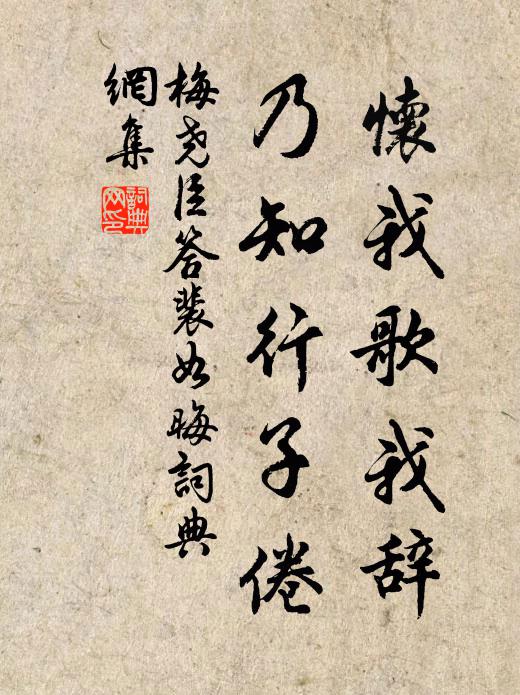 懷我歌我辞
乃知行子倦
梅尧臣答裴如晦詞典
網集
詞典網印